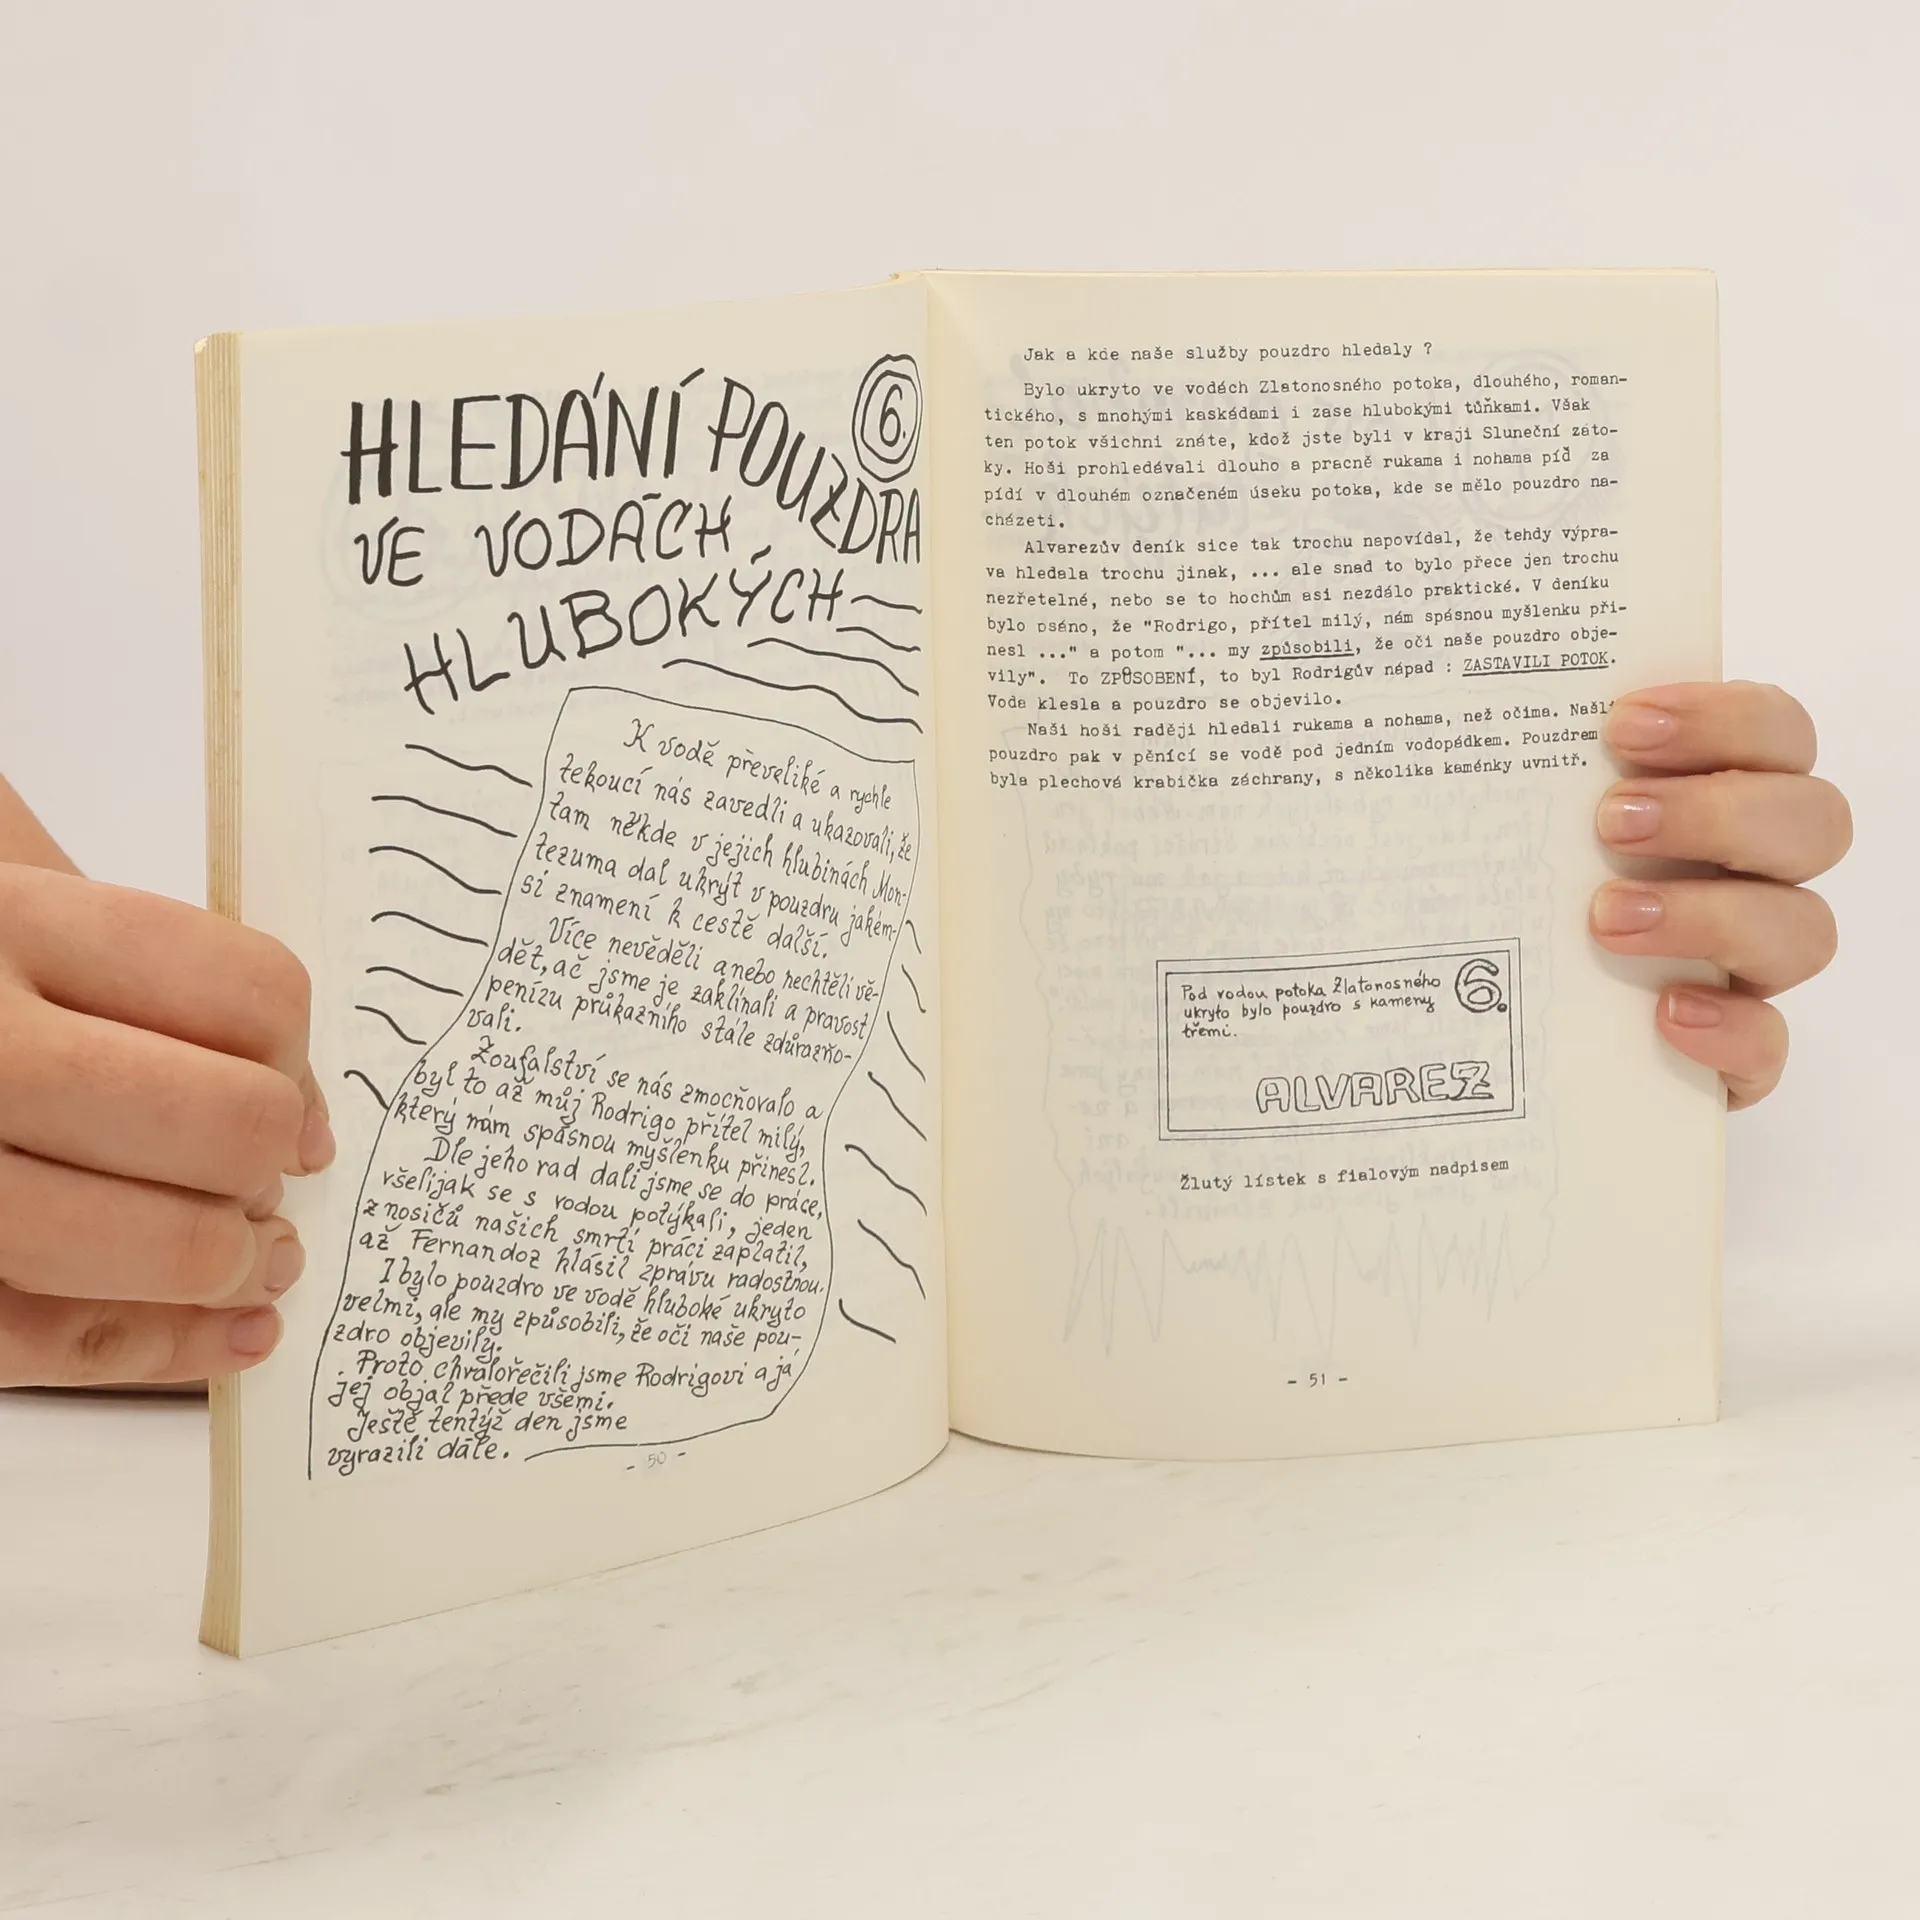 HLEDÁNÍ POUZDRA
6.
VE VODÁCH
HLUBOKÝCH
K vodě převeliké a rychle
tekoucí nás zavedli a ukazovali, že
tam někde v jejich hlubinách Mon-
tezuma dal ukrýt v pouzdru jakém-
si znamení k cestě další.
Více nevěděli anebo nechtěli vě-
dět, ač jsme je zaklínali a pravost
penízu průkazního stále zdůrazňo-
vali.
Zoufalství se nás zmocňovalo a
byl to až můj Rodrigo přítel milý,
který nám spásnou myšlenku přinesl.
Dle jeho rad dali jsme se do práce,
všelijak se s vodou potýkali, jeden
z nosičů našich smrtí práci zaplatil,
až Fernandoz hlásil zprávu radostnou.
I bylo pouzdro ve vodě hluboké ukryto
velmi, ale my způsobili, že oči naše pou-
zdro objevily.
Proto chvalořečili jsme Rodrigovi a já
jej objal přede všemi.
Ještě tentýž den jsme
vyrazili dále.
- 50 -
Jak a kde naše služby pouzdro hledaly ?
Bylo ukryto ve vodách Zlatonosného potoka, dlouhého, roman-
tického, s mnohými kaskádami i zase hlubokými tůňkami. Však
ten potok všichni znáte, kdož jste byli v kraji Sluneční záto-
ky. Hoši prohledávali dlouho a pracně rukama i nohama píď za
pídí v dlouhém označeném úseku potoka, kde se mělo pouzdro na-
cházeti.
Alvarezův deník sice tak trochu napovídal, že tehdy výpra-
va hledala trochu jinak, ... ale snad to bylo přece jen trochu
nezřetelné, nebo se to hochům asi nezdálo praktické. V deníku
bylo psáno, že "Rodrigo, přítel milý, nám spásnou myšlenku při-
nesl ..." a potom "... my způsobili, že oči naše pouzdro obje-
vily". To ZPŮSOBENÍ, to byl Rodrigův nápad : ZASTAVILI POTOK.
Voda klesla a pouzdro se objevilo.
Naši hoši raději hledali rukama a nohama, než očima. Našli
pouzdro pak v pěnící se vodě pod jedním vodopádkem. Pouzdrem
byla plechová krabička záchrany, s několika kaménky uvnitř.
Pod vodou potoka Zlatonosného
ukryto bylo pouzdro s kameny
třemi.
6.
ALVAREZ
Žlutý lístek s fialovým nadpisem
- 51 -